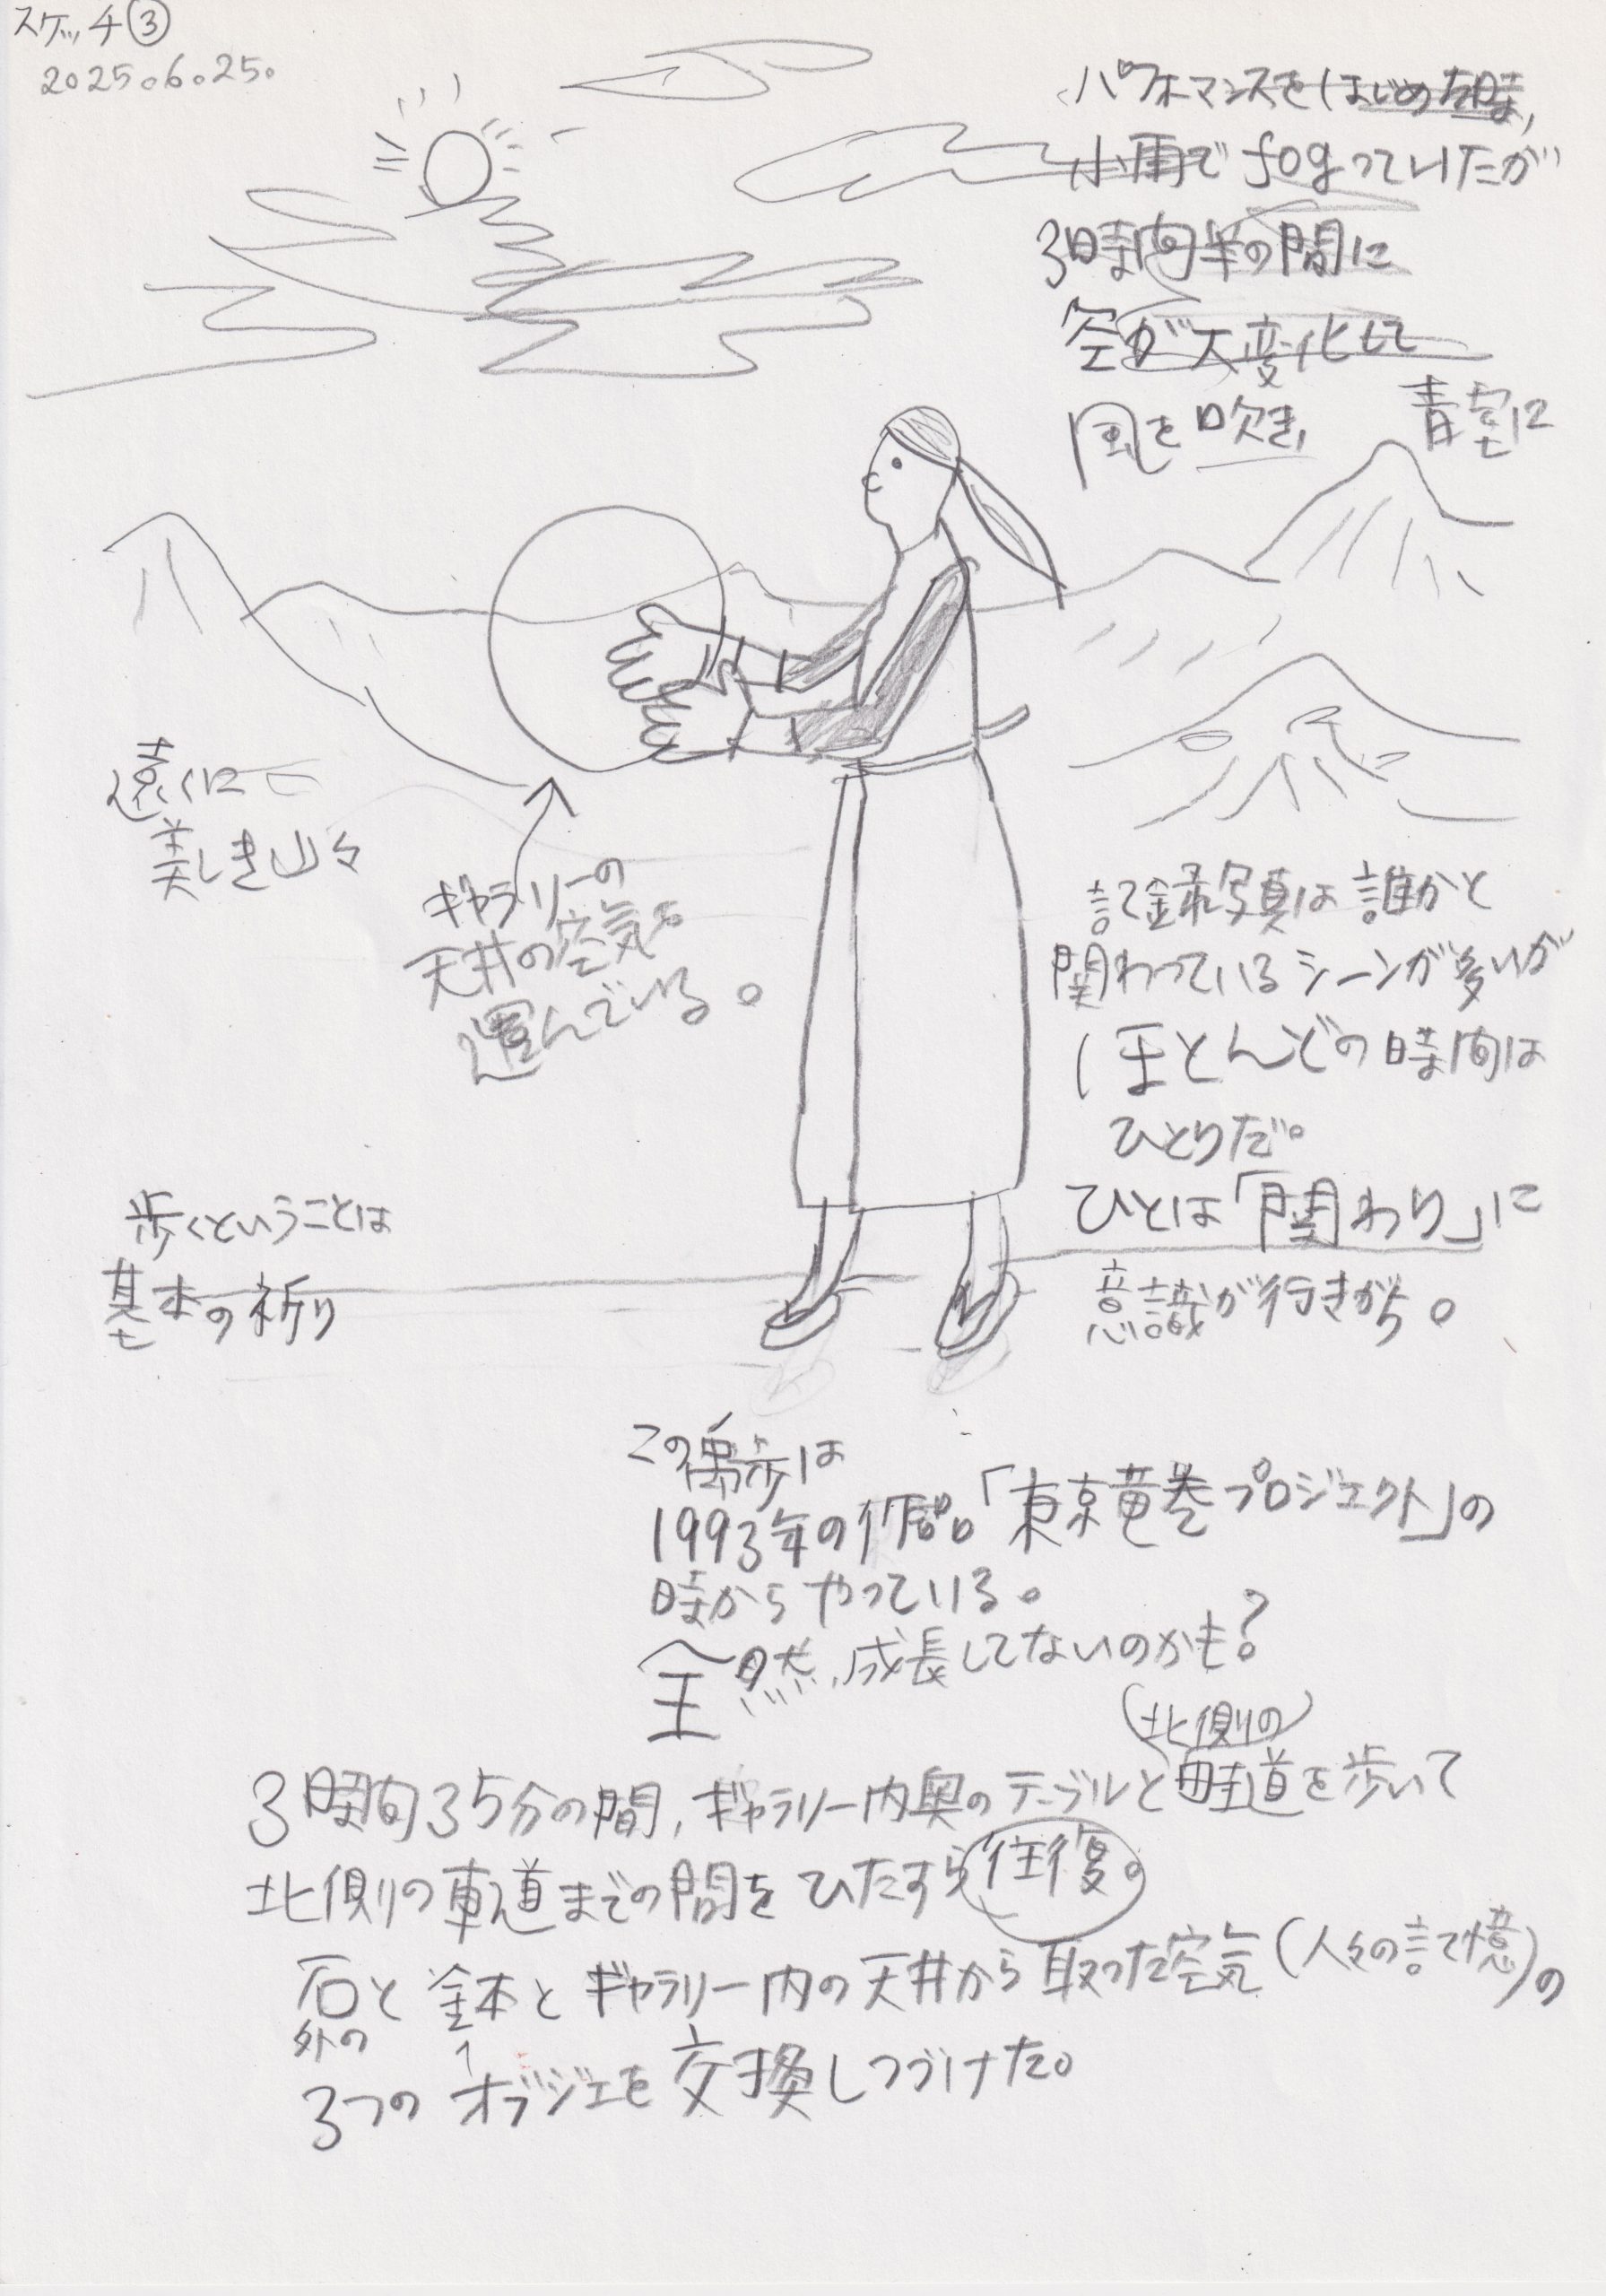 スケッチ③
2025.6.25.
パフォマンスをはじめた時は,
小雨でfogっていたが
3時間半の間に
空が大変化して
風を吹き, 青空に
遠くに
美しき山々
ギャラリーの
天井の空気を
運んでいる。
記録写真は誰かと
関わっているシーンが多いが
ほとんどの時間は
ひとりだ。
ひとは「関わり」に
意識が行きがち。
歩くということは
基本の祈り
この禹歩は
1993年の作品「東京竜巻プロジェクト」の
時からやっている。
全然,成長してないのかも?
(北側の)
3時間35分の間,ギャラリー内奥のテーブルと畦道を歩いて
北側の車道までの間をひたすら往復。
石と鉢とギャラリー内の天井から取った空気(人々の記憶)の
外の
3つのオブジェを交換しつづけた。